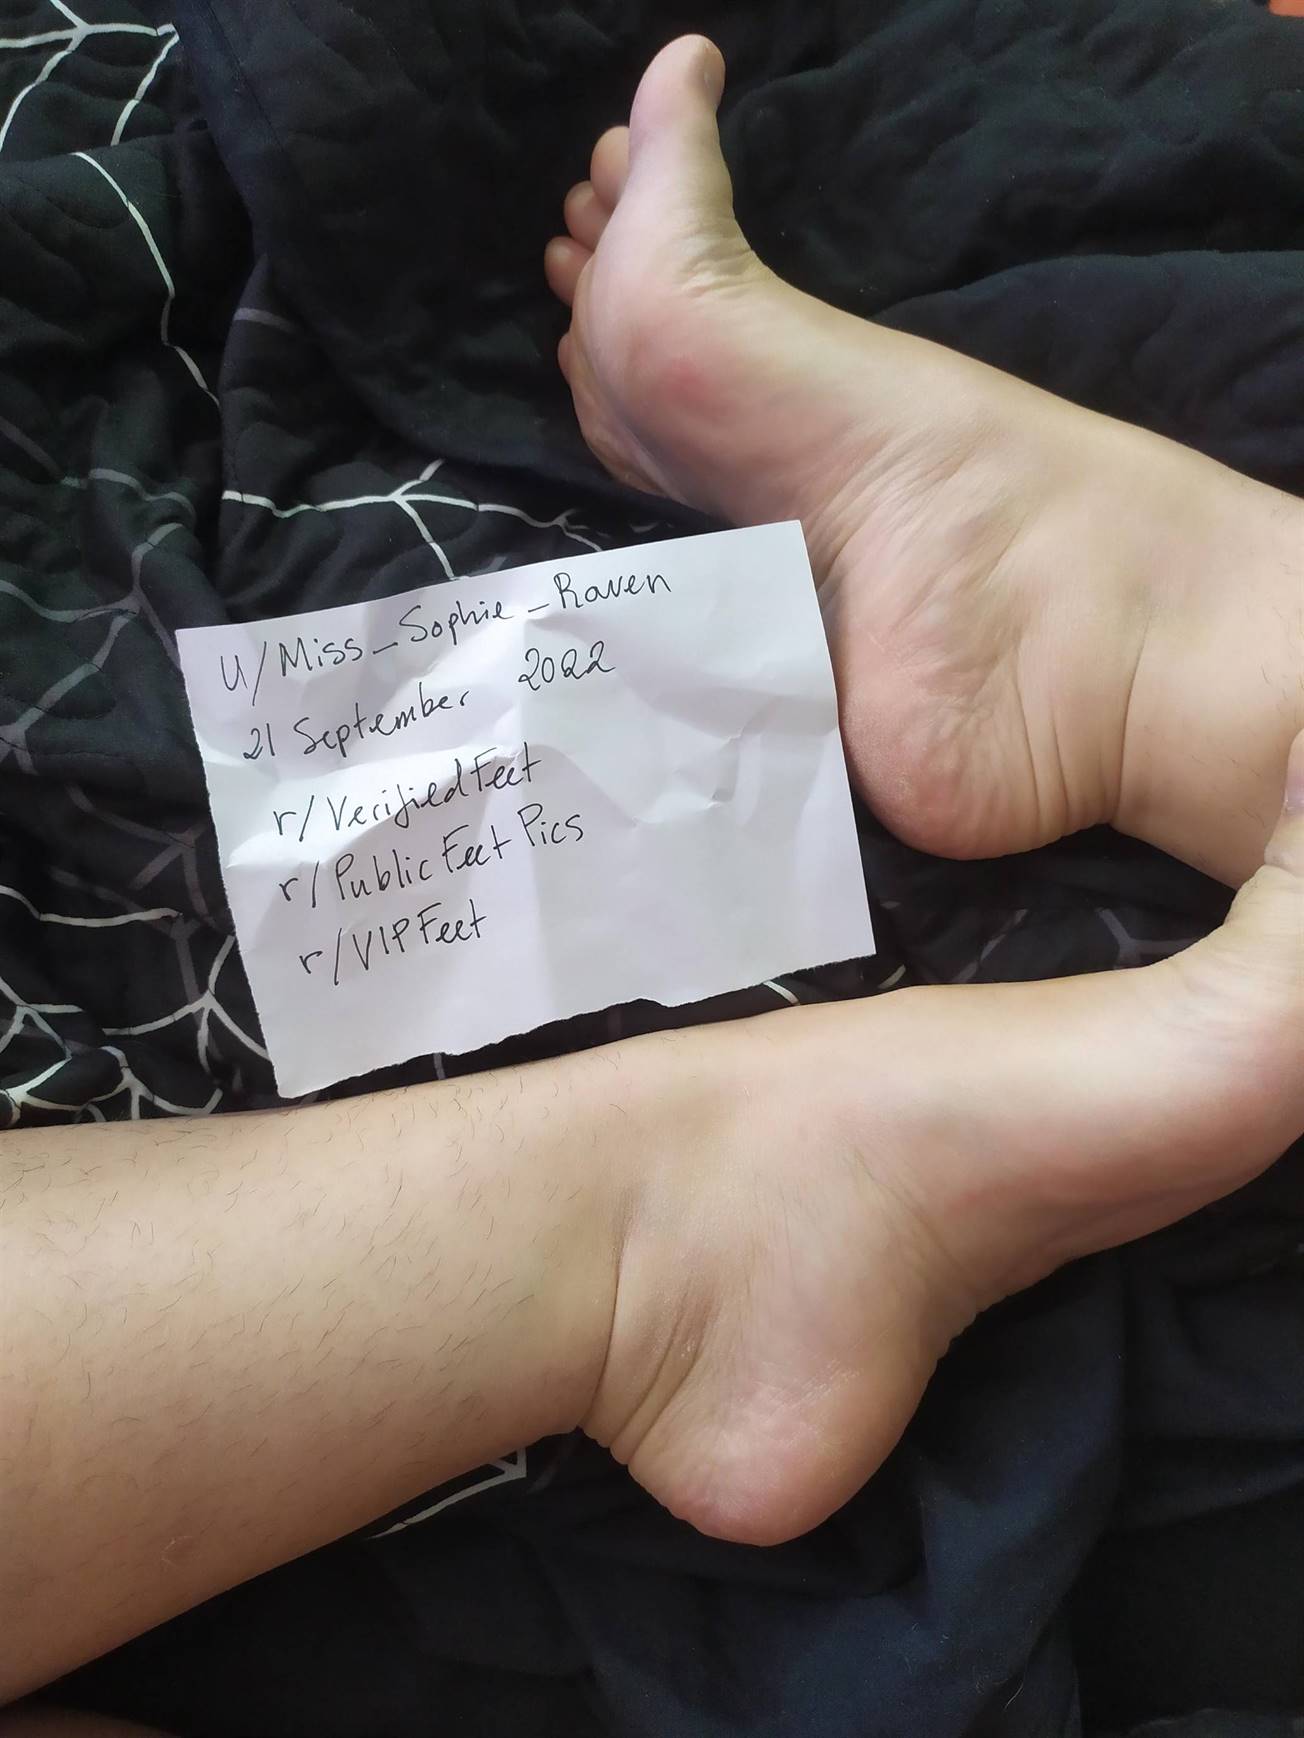 u/Miss_Sophie_Raven
21 September 2022
r/VerifiedFeet
r/PublicFeetPics
r/VIPFeet